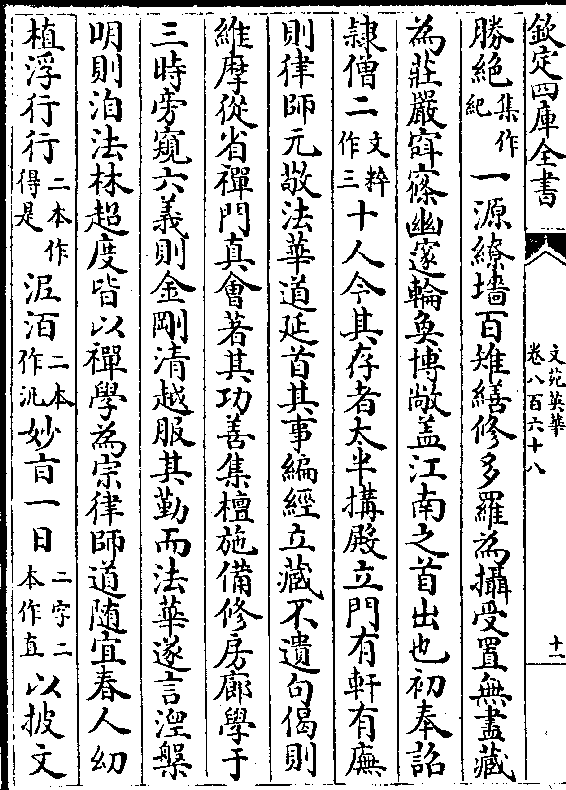 欽定四庫全書
文苑英華
卷八百六十八
十一
勝絶集作紀一源繚墻百雉繕修多羅為攝受置無盡藏
為莊嚴窅篠幽邃輪奐博敞盖江南之首出也初奉詔
隸僧二文粹作三十人今其存者太半搆殿立門有軒有廡
則律師元敬法華道延首其事編經立藏不遺句偈則
維摩從省禪門真會著其功善集檀施備修房廊學于
三時旁窺六義則金剛清越服其勤而法華遂言湼槃
明則洎法林超度皆以禪學為宗律師道随宜春人幼
植浮行行二本作得是泯洦二本作汎妙㫖一日二字二本作直以披文